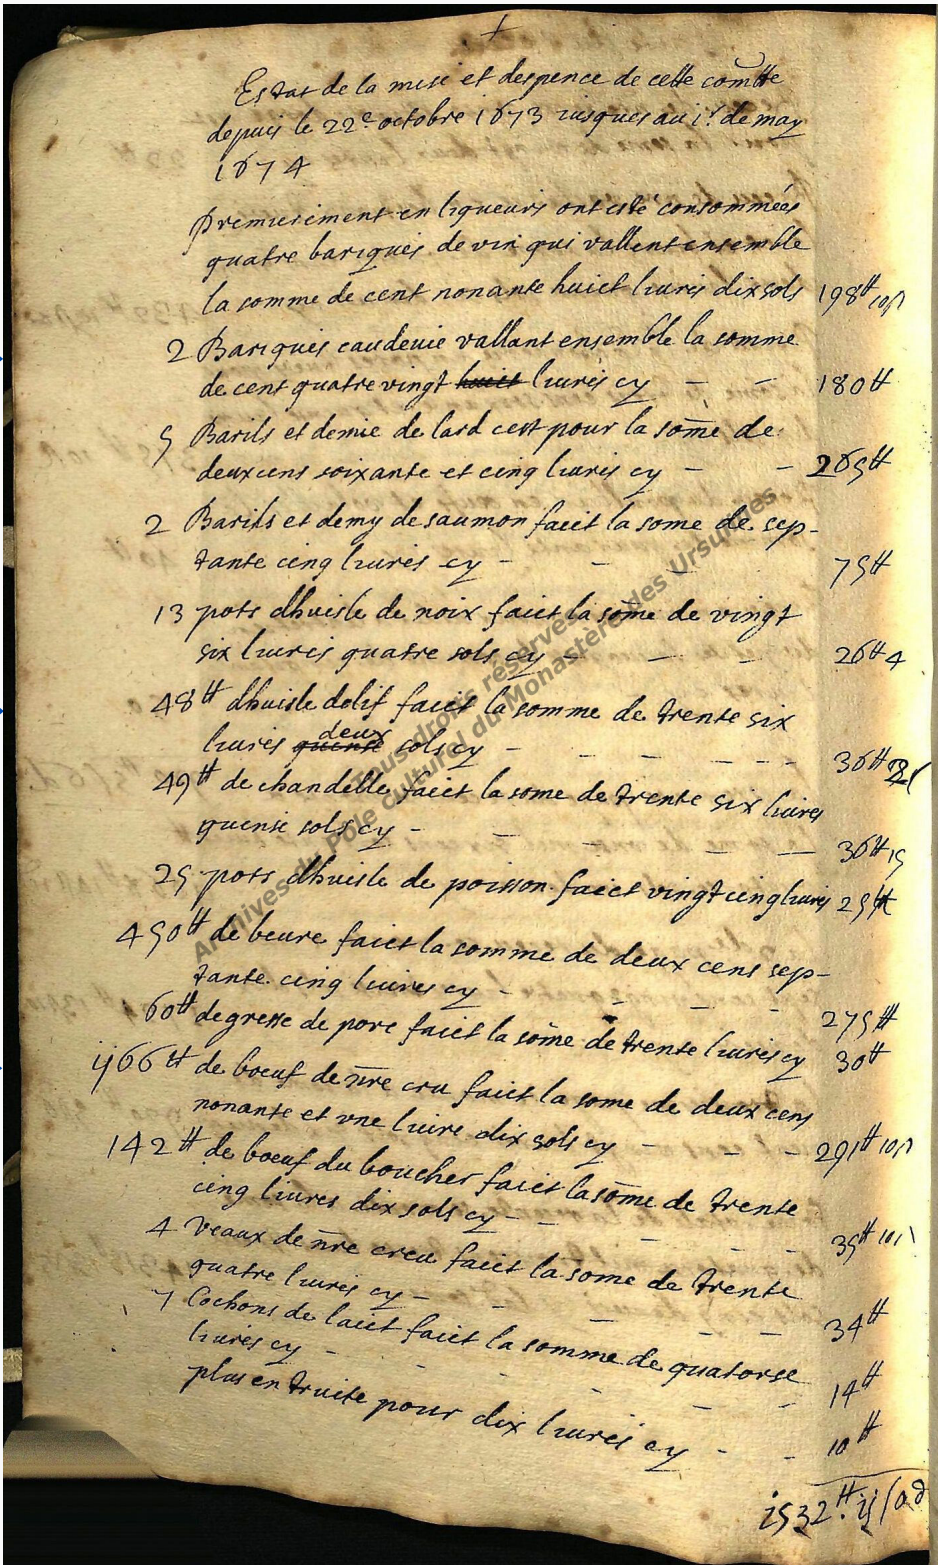 +
Estat de la mise et despence de cette comtte
depuis le 22e octobre 1673 jusques au 1r de may
1674
Premierement en liqueurs ont esté consommées
quatre bariques de vin qui vallent ensemble
la somme de cent nonante huict livres dix sols 198tt 10s
2 Bariques eaudevie vallant ensemble la somme
de cent quatre vingt huict livres cy - - 180tt
5 Barils et demie de lard cest pour la some de
deux cens soixante et cinq livres cy - - 265tt
2 Barils et demy de saumon faict la some de sep-
tante cinq livres cy - - - 75tt
13 pots dhuisle de noix faict la some de vingt
six livres quatre sols cy - - - 26tt 4
48tt dhuisle dolif faict la somme de trente six
livres quense deux sols cy - - - - - 36tt 2s
49tt de chandelle faict la some de trente six livres
quense sols cy - - - - - 36tt 15
25 pots dhuisle de poisson faict vingt cinq livres 25tt
450tt de beure faict la somme de deux cens sep-
tante cinq livres cy - - - - 275tt
60tt de gresse de porc faict la some de trente livres cy 30tt
ij66tt de boeuf de nre cru faict la some de deux cens
nonante et vne livre dix sols cy - - - 291tt 10s
142tt de boeuf du boucher faict la some de trente
cinq livres dix sols cy - - - - - 35tt 10s
4 Veaux de nre creu faict la some de trente
quatre livres cy - - - - - 34tt
7 Cochons de laict faict la somme de quatorse
livres cy - - - - - 14tt
plus en truite pour dix livres cy - - 10tt
i532tt ij s 0d
Archives du Pôle culturel du Monastère des Ursulines
Tous droits réservés